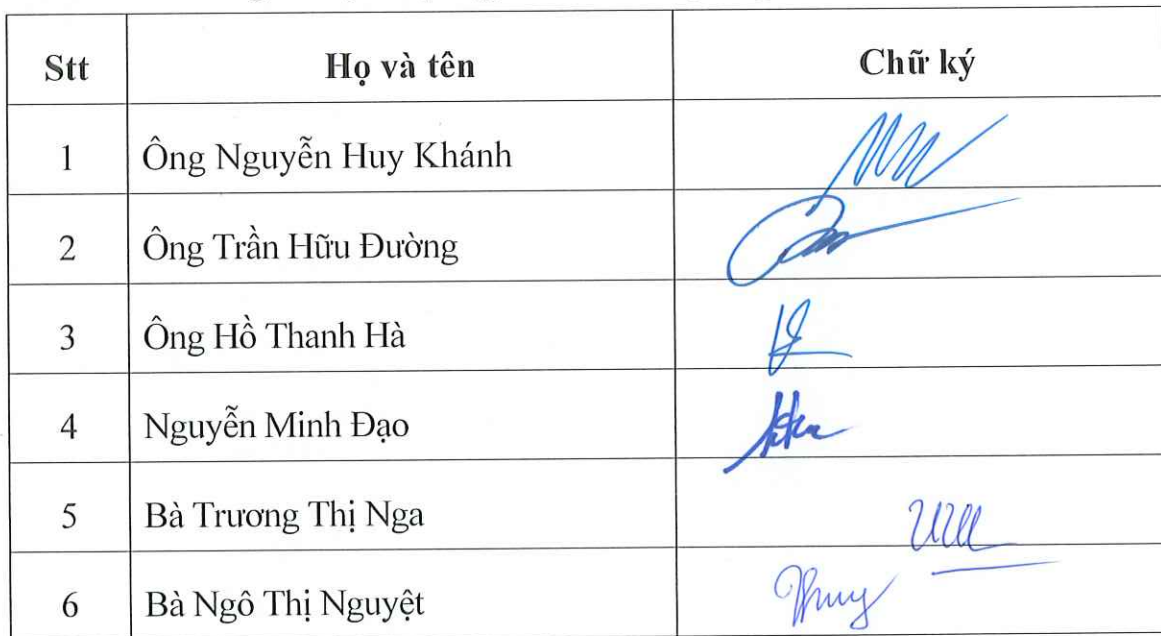 Stt Họ và tên Chữ ký
1 Ông Nguyễn Huy Khánh
2 Ông Trần Hữu Đường
3 Ông Hồ Thanh Hà
4 Nguyễn Minh Đạo
5 Bà Trương Thị Nga
6 Bà Ngô Thị Nguyệt